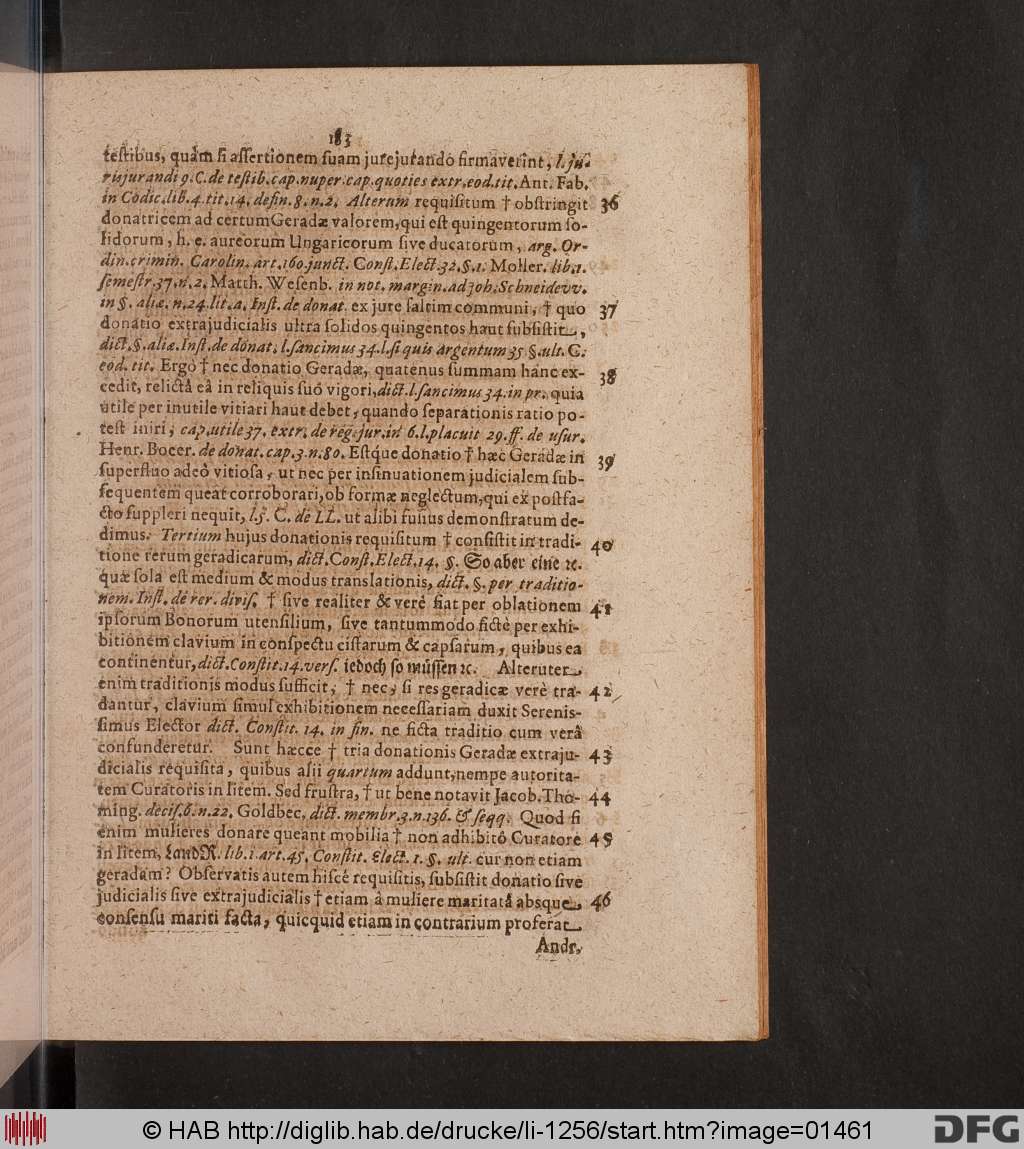 183
teſtibus, quàm ſi aſſertionem ſuam jurejurandó firmaverint, l. ju-
risjurandi 9. C. de teſtib. cap. nuper. cap. quoties extr. eod. tit. Ant. Fab.
in Codic. lib. 4. tit. 14. defin. 8. n. 2. Alterum requiſitum † obſtringit 36
donatricem ad certum Geradæ valorem, qui eſt quingentorum ſo-
lidorum, h. e. aureorum Ungaricorum ſive ducatorum, arg. Or-
din. crimin. Carolin. art. 160. junct. Conſt. Elect. 32. §. 1. Moller. lib. 1.
ſemeſtr. 37. n. 2. Matth. Weſenb. in not. margin. ad Joh. Schneidevv.
in §. aliæ. n. 24. lit. a. Inſt. de donat. ex jure ſaltim communi, † quo 37
donatio extrajudicialis ultra ſolidos quingentos haut ſubſiſtit,
dict. §. aliæ. Inſt. de donat. l. ſancimus 34. l. ſi quis argentum 35 §. ult. C.
eod. tit. Ergò † nec donatio Geradæ, quatenus ſummam hanc ex- 38
cedit, relictâ eâ in reliquis ſuô vigori, dict. l. ſancimus 34. in pr. quia
utile per inutile vitiari haut debet, quando ſeparationis ratio po-
teſt iniri, cap. utile 37. extr. de reg. jur. in 6. l. placuit 29. ff. de uſur.
Henr. Bocer. de donat. cap. 3. n. 80. Eſtque donatio † hæc Geradæ in 39
ſuperfluo adeò vitioſa, ut nec per inſinuationem judicialem ſub-
ſequentem queat corroborari, ob formæ neglectum, qui ex poſtfa-
cto ſuppleri nequit, l. 5. C. de LL. ut alibi fuſius demonſtratum de-
dimus. Tertium hujus donationis requiſitum † conſiſtit in tradi- 40
tione rerum geradicarum, dict. Conſt. Elect. 14. §. So aber eine ꝛc.
quæ ſola eſt medium & modus translationis, dict. §. per traditio-
nem. Inſt. de rer. diviſ. † ſive realiter & verè fiat per oblationem 41
ipſorum Bonorum utenſilium, ſive tantummodo fictè per exhi-
bitionem clavium in conſpectu ciſtarum & capſarum, quibus ea
continentur, dict. Conſtit. 14. verſ. iedoch ſo müſſen ꝛc. Alteruter
enim traditionis modus ſufficit, † nec, ſi res geradicæ verè tra- 42
dantur, clavium ſimul exhibitionem neceſſariam duxit Sereniſ-
ſimus Elector dict. Conſtit. 14. in fin. ne ficta traditio cum verâ
confunderetur. Sunt hæcce † tria donationis Geradæ extraju- 43
dicialis requiſita, quibus alii quartum addunt, nempe autorita-
tem Curatoris in litem. Sed fruſtra, † ut bene notavit Jacob. Tho- 44
ming. deciſ. 6. n. 22. Goldbec. dict. membr. 3. n. 136. & ſeqq. Quod ſi
enim mulieres donare queant mobilia † non adhibitô Curatore 45
in litem, LandR. lib. 1. art. 45. Conſtit. Elect. 1. §. ult. cur non etiam
geradam? Obſervatis autem hiſcè requiſitis, ſubſiſtit donatio ſive
judicialis ſive extrajudicialis † etiam à muliere maritatâ absque 46
conſenſu mariti facta, quicquid etiam in contrarium proferat
Andr.
© HAB http://diglib.hab.de/drucke/li-1256/start.htm?image=01461
DFG